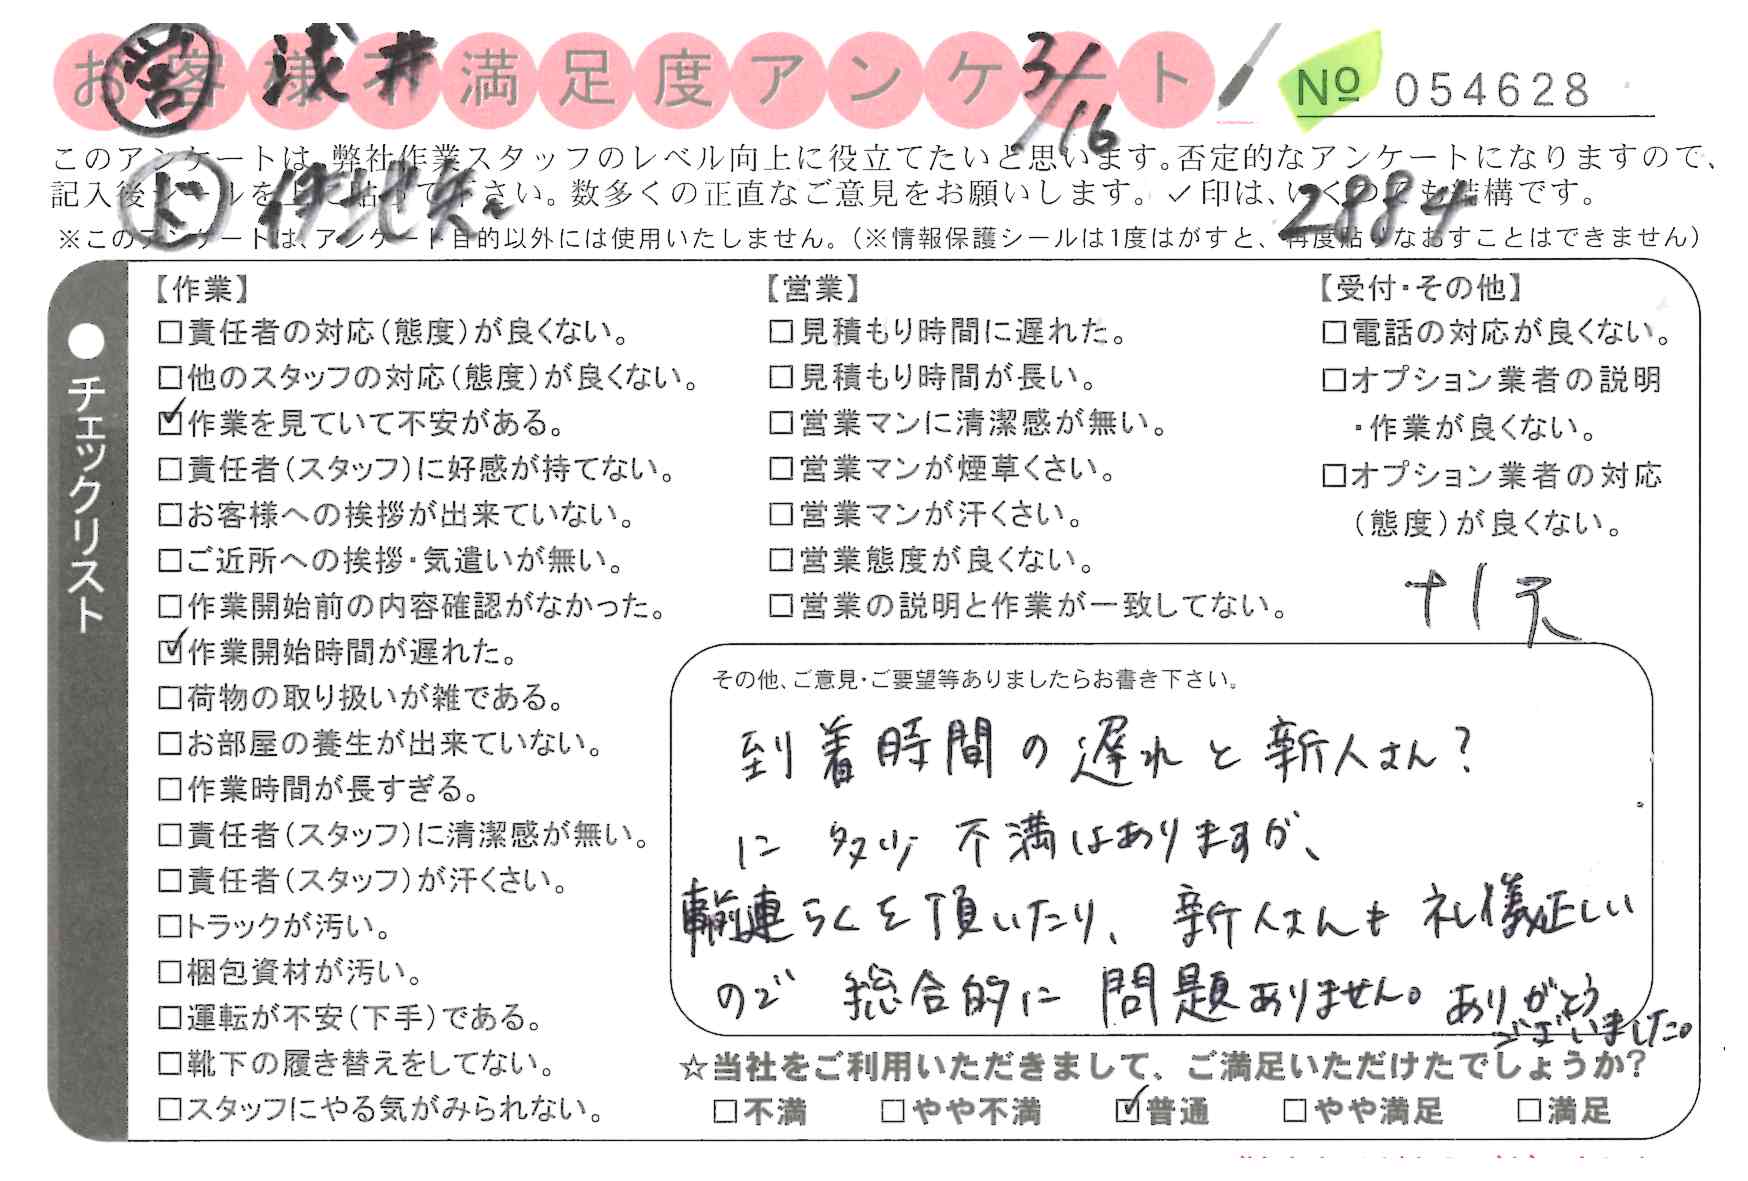 お客様不満足度アンケート
営 浅井 3/16
No 054628
このアンケートは、弊社作業スタッフのレベル向上に役立てたいと思います。否定的なアンケートになりますので、
記入後シールを上に貼って下さい。数多くの正直なご意見をお願いします。✓印は、いくつでも結構です。
ド 2884
※このアンケートは、アンケート目的以外には使用いたしません。(※情報保護シールは1度はがすと、再度貼りなおすことはできません)
●チェックリスト
【作業】
□責任者の対応(態度)が良くない。
□他のスタッフの対応(態度)が良くない。
☑作業を見ていて不安がある。
□責任者(スタッフ)に好感が持てない。
□お客様への挨拶が出来ていない。
□ご近所への挨拶・気遣いが無い。
□作業開始前の内容確認がなかった。
☑作業開始時間が遅れた。
□荷物の取り扱いが雑である。
□お部屋の養生が出来ていない。
□作業時間が長すぎる。
□責任者(スタッフ)に清潔感が無い。
□責任者(スタッフ)が汗くさい。
□トラックが汚い。
□梱包資材が汚い。
□運転が不安(下手)である。
□靴下の履き替えをしてない。
□スタッフにやる気がみられない。
【営業】
□見積もり時間に遅れた。
□見積もり時間が長い。
□営業マンに清潔感が無い。
□営業マンが煙草くさい。
□営業マンが汗くさい。
□営業態度が良くない。
□営業の説明と作業が一致してない。
【受付・その他】
□電話の対応が良くない。
□オプション業者の説明
・作業が良くない。
□オプション業者の対応
(態度)が良くない。
ナイス
その他、ご意見・ご要望等ありましたらお書き下さい。
到着時間の遅れと新人さん?
に多少不満はありますが、
事前連らくを頂いたり、新人さんも礼儀正しい
ので総合的に問題ありません。ありがとう
ございました。
☆当社をご利用いただきまして、ご満足いただけたでしょうか?
□不満 □やや不満 ☑普通 □やや満足 □満足